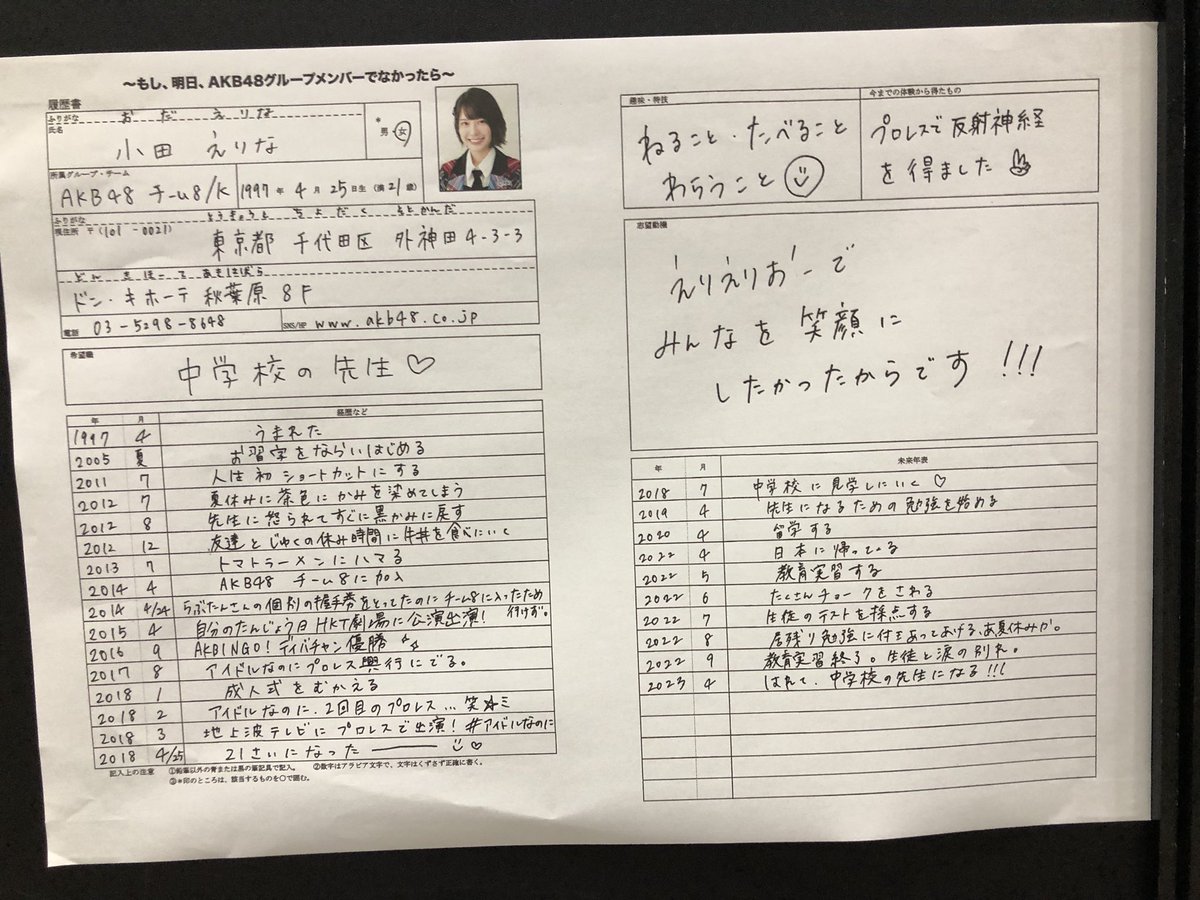 〜もし、明日、AKB48グループメンバーでなかったら〜
履歴書
ふりがな おだ えりな
氏名 小田 えりな
* 男・女
所属グループ・チーム
AKB48 チーム8/K 1997年 4月 25日生 (満21歳)
ふりがな とうきょうと ちよだく そとかんだ
現住所 〒(101-0021)
東京都 千代田区 外神田4-3-3
どん きほーて あきはばら
ドン・キホーテ 秋葉原 8F
電話 03-5298-8648 SNS/HP www.akb48.co.jp
希望職
中学校の先生♡
年 月 経歴など
1997 4 うまれた
2005 夏 お習字をならいはじめる
2011 7 人生初ショートカットにする
2012 7 夏休みに茶色にかみを染めてしまう
2012 8 先生に怒られてすぐに黒かみに戻す
2012 12 友達とじゅくの休み時間に牛丼を食べにいく
2013 7 トマトラーメンにハマる
2014 4 AKB48 チーム8に加入
2014 4/24 らぶたんさんの個別の握手券をとってたのにチーム8に入ったため行けず。
2015 4 自分のたんじょう日HKT劇場に公演出演!
2016 9 AKBINGO!ディバチャン優勝
2017 8 アイドルなのにプロレス興行にでる。
2018 1 成人式をむかえる
2018 2 アイドルなのに、2回目のプロレス…笑☆ミ
2018 3 地上波テレビにプロレスで出演!#アイドルなのに
2018 4/25 21さいになった ——— ♡
記入上の注意 ①鉛筆以外の青または黒の筆記具で記入。 ②数字はアラビア文字で、文字はくずさず正確に書く。
③*印のところは、該当するものを○で囲む。
趣味・特技
ねること・たべること
わらうこと
今までの体験から得たもの
プロレスで反射神経
を得ました
志望動機
えりえりおーで
みんなを笑顔に
したかったからです!!!
年 月 未来年表
2018 7 中学校に見学しにいく♡
2019 4 先生になるための勉強を始める
2020 4 留学する
2022 4 日本に帰ってくる
2022 5 教育実習する
2022 6 たくさんチョークをきれる
2022 7 生徒のテストを採点する
2022 8 居残り勉強に付きあってあげる、あ夏休みか。
2022 9 教育実習終了。生徒と涙の別れ。
2023 4 はれて、中学校の先生になる!!!